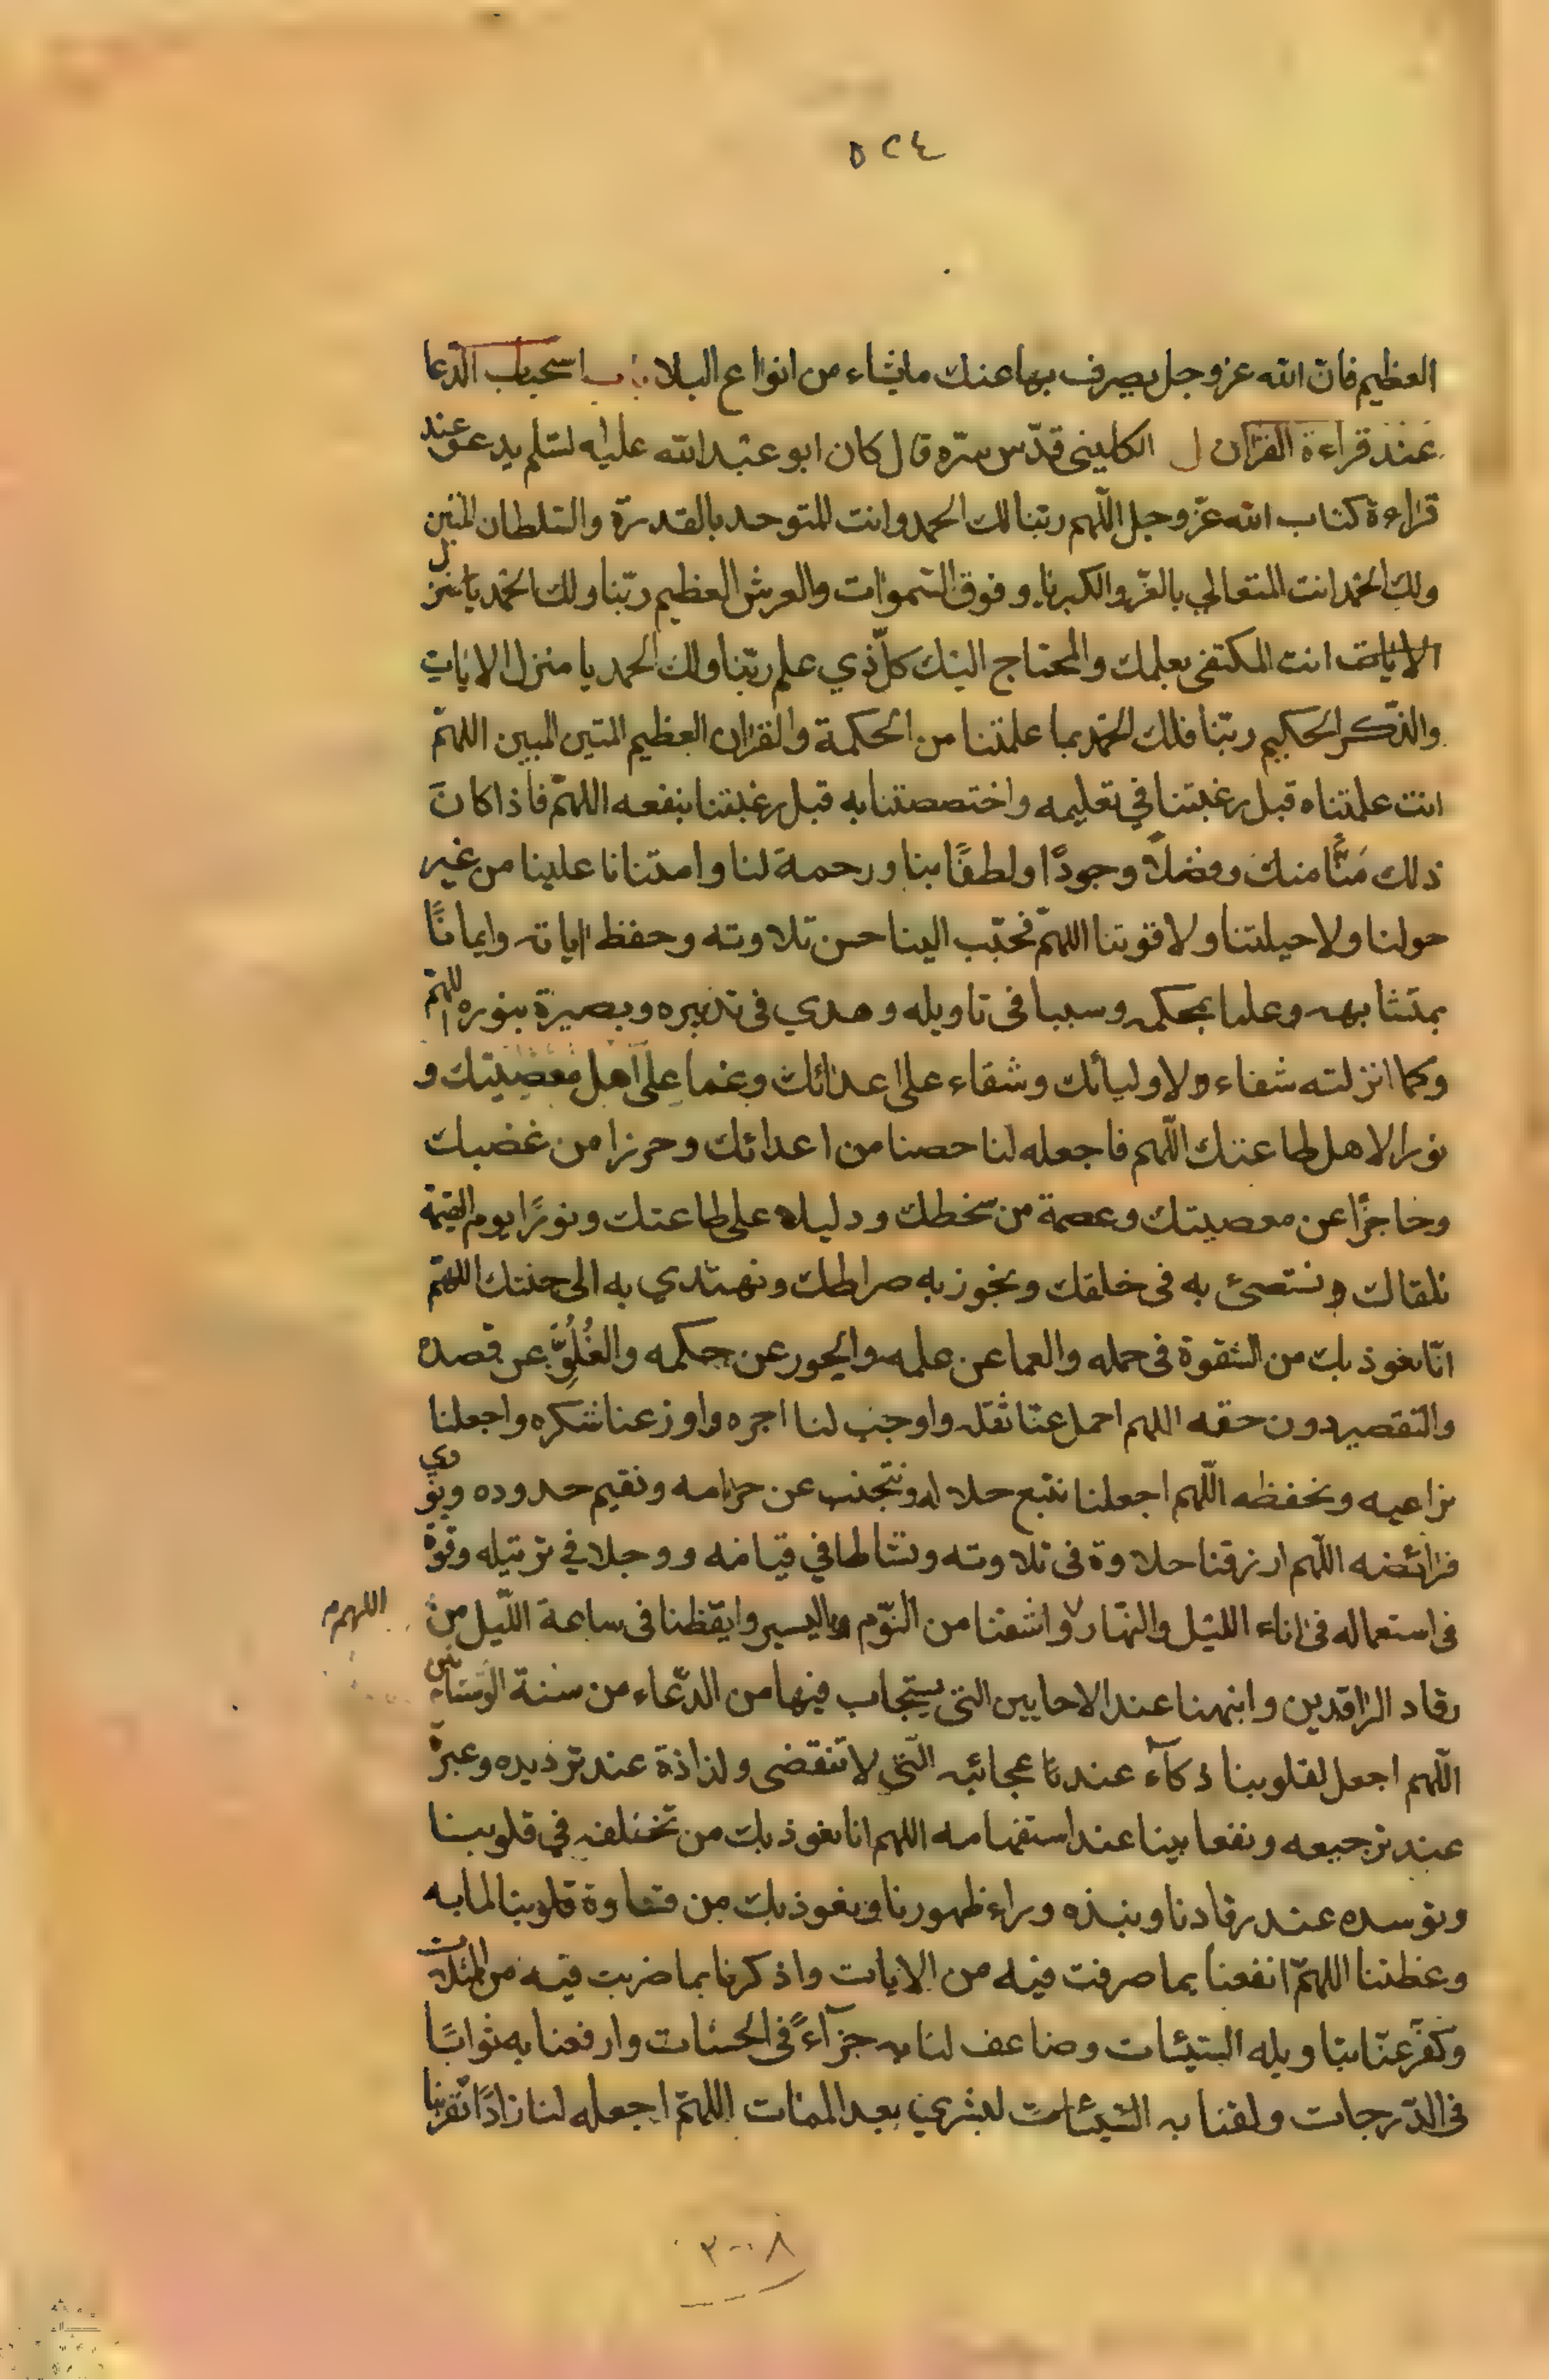 ٥٢٤
العظيم فانّ الله عز وجل يصرف بها عنك ما يشاء من انواع البلاء ب استحباب الدّعا
عند قراءة القران ل الكلينى قدّس سرّه قال كان ابو عبد الله عليه لسّلم يدعو عند
قراءة كتاب الله عزّ وجل اللّهم ربّنا لك الحمد وانت المتوحد بالقدرة والسّلطان المتين
ولك الحمد انت المتعالي بالعزّ والكبرياء وفوق السّموات والعرش العظيم ربّنا ولك الحمد يا منزل
الايات انت المكتفى بعلمك والمحتاج اليك كلّ ذي علم ربّنا ولك الحمد يا منزل الايات
والذّكر الحكيم ربّنا فلك الحمد بما علمتنا من الحكمة والقران العظيم المتين المبين اللهمّ
انت علمتناه قبل رغبتنا في تعليمه واختصصتنا به قبل رغبتنا بنفعه اللهمّ فاذا كانَ
ذلك مَنًّا منك وفضلاً وجودًا ولطفًا بنا ورحمة لنا وامتنانا علينا من غير
حولنا ولا حيلتنا ولا قوتنا اللهمّ فحبّب الينا حسن تلاوته وحفظ اياته وايمانًا
بمتشابهه وعلما بمحكمه وسببا فى تاويله وهدي فى تدبيره وبصيرة بنوره اللهمّ
وكما انزلته شفاء ولاوليائك وشقاء على اعدائك وعما على اهل معصيتك و
نورا لاهل طاعتك اللّهم فاجعله لنا حصنا من اعدائك وحرزا من غضبك
وحاجزًا عن معصيتك وعصمة من سخطك ودليلا على طاعتك ونورًا يوم القيمة
نلقاك ونستضئ به فى خلقك ونجوز به صراطك ونهتدي به الى جنتك اللهمّ
انّا نعوذ بك من الشقوة فى حمله والعما عن علمه والجور عن حكمه والغُلُوِّ عن قصده
والتقصير دون حقه اللهم احمل عنّا ثقله واوجب لنا اجره واوزعنا شكره واجعلنا
نراعيه ونحفظه اللّهم اجعلنا نتبع حلاله ونتجنب عن حرامه ونقيم حدوده ونؤدي
فرائضه اللّهم ارزقنا حلاوة فى تلاوته ونشاطا في قيامه ووجلا في ترتيله وقوة
فى استعماله فى اناء الليل والنهار واشفنا من النّوم باليسير وايقظنا فى ساعة اللّيل من
اللهم م
رقاد الراقدين وانبهنا عند الاحايين التى يستجاب فيها من الدّعاء من سنة الوسنانين
اللّهم اجعل لقلوبنا ذكآء عندنا عجائبه الّتى لا تنقضى ولذاذة عند ترديده وعبرة
عند ترجيعه ونفعا بينا عند استفهامه اللهم انا نعوذ بك من تخلفه فى قلوبنا
وتوسده عند رقادنا ونبذه وراء ظهورنا ونعوذ بك من قساوة قلوبنا لما به
وعظتنا اللهمّ انفعنا بما صرفت فيه من الايات واذكرنا بما ضربت فيه من المثلات
وكفّر عنّا بتاويله السّيئات وضاعف لنا به جزآءً فى الحسنات وارفعنا به ثوابًا
فى الدّرجات ولقنا به السّيئات لبشري بعد الممات اللهمّ اجعله لنا زادًا تقربنا